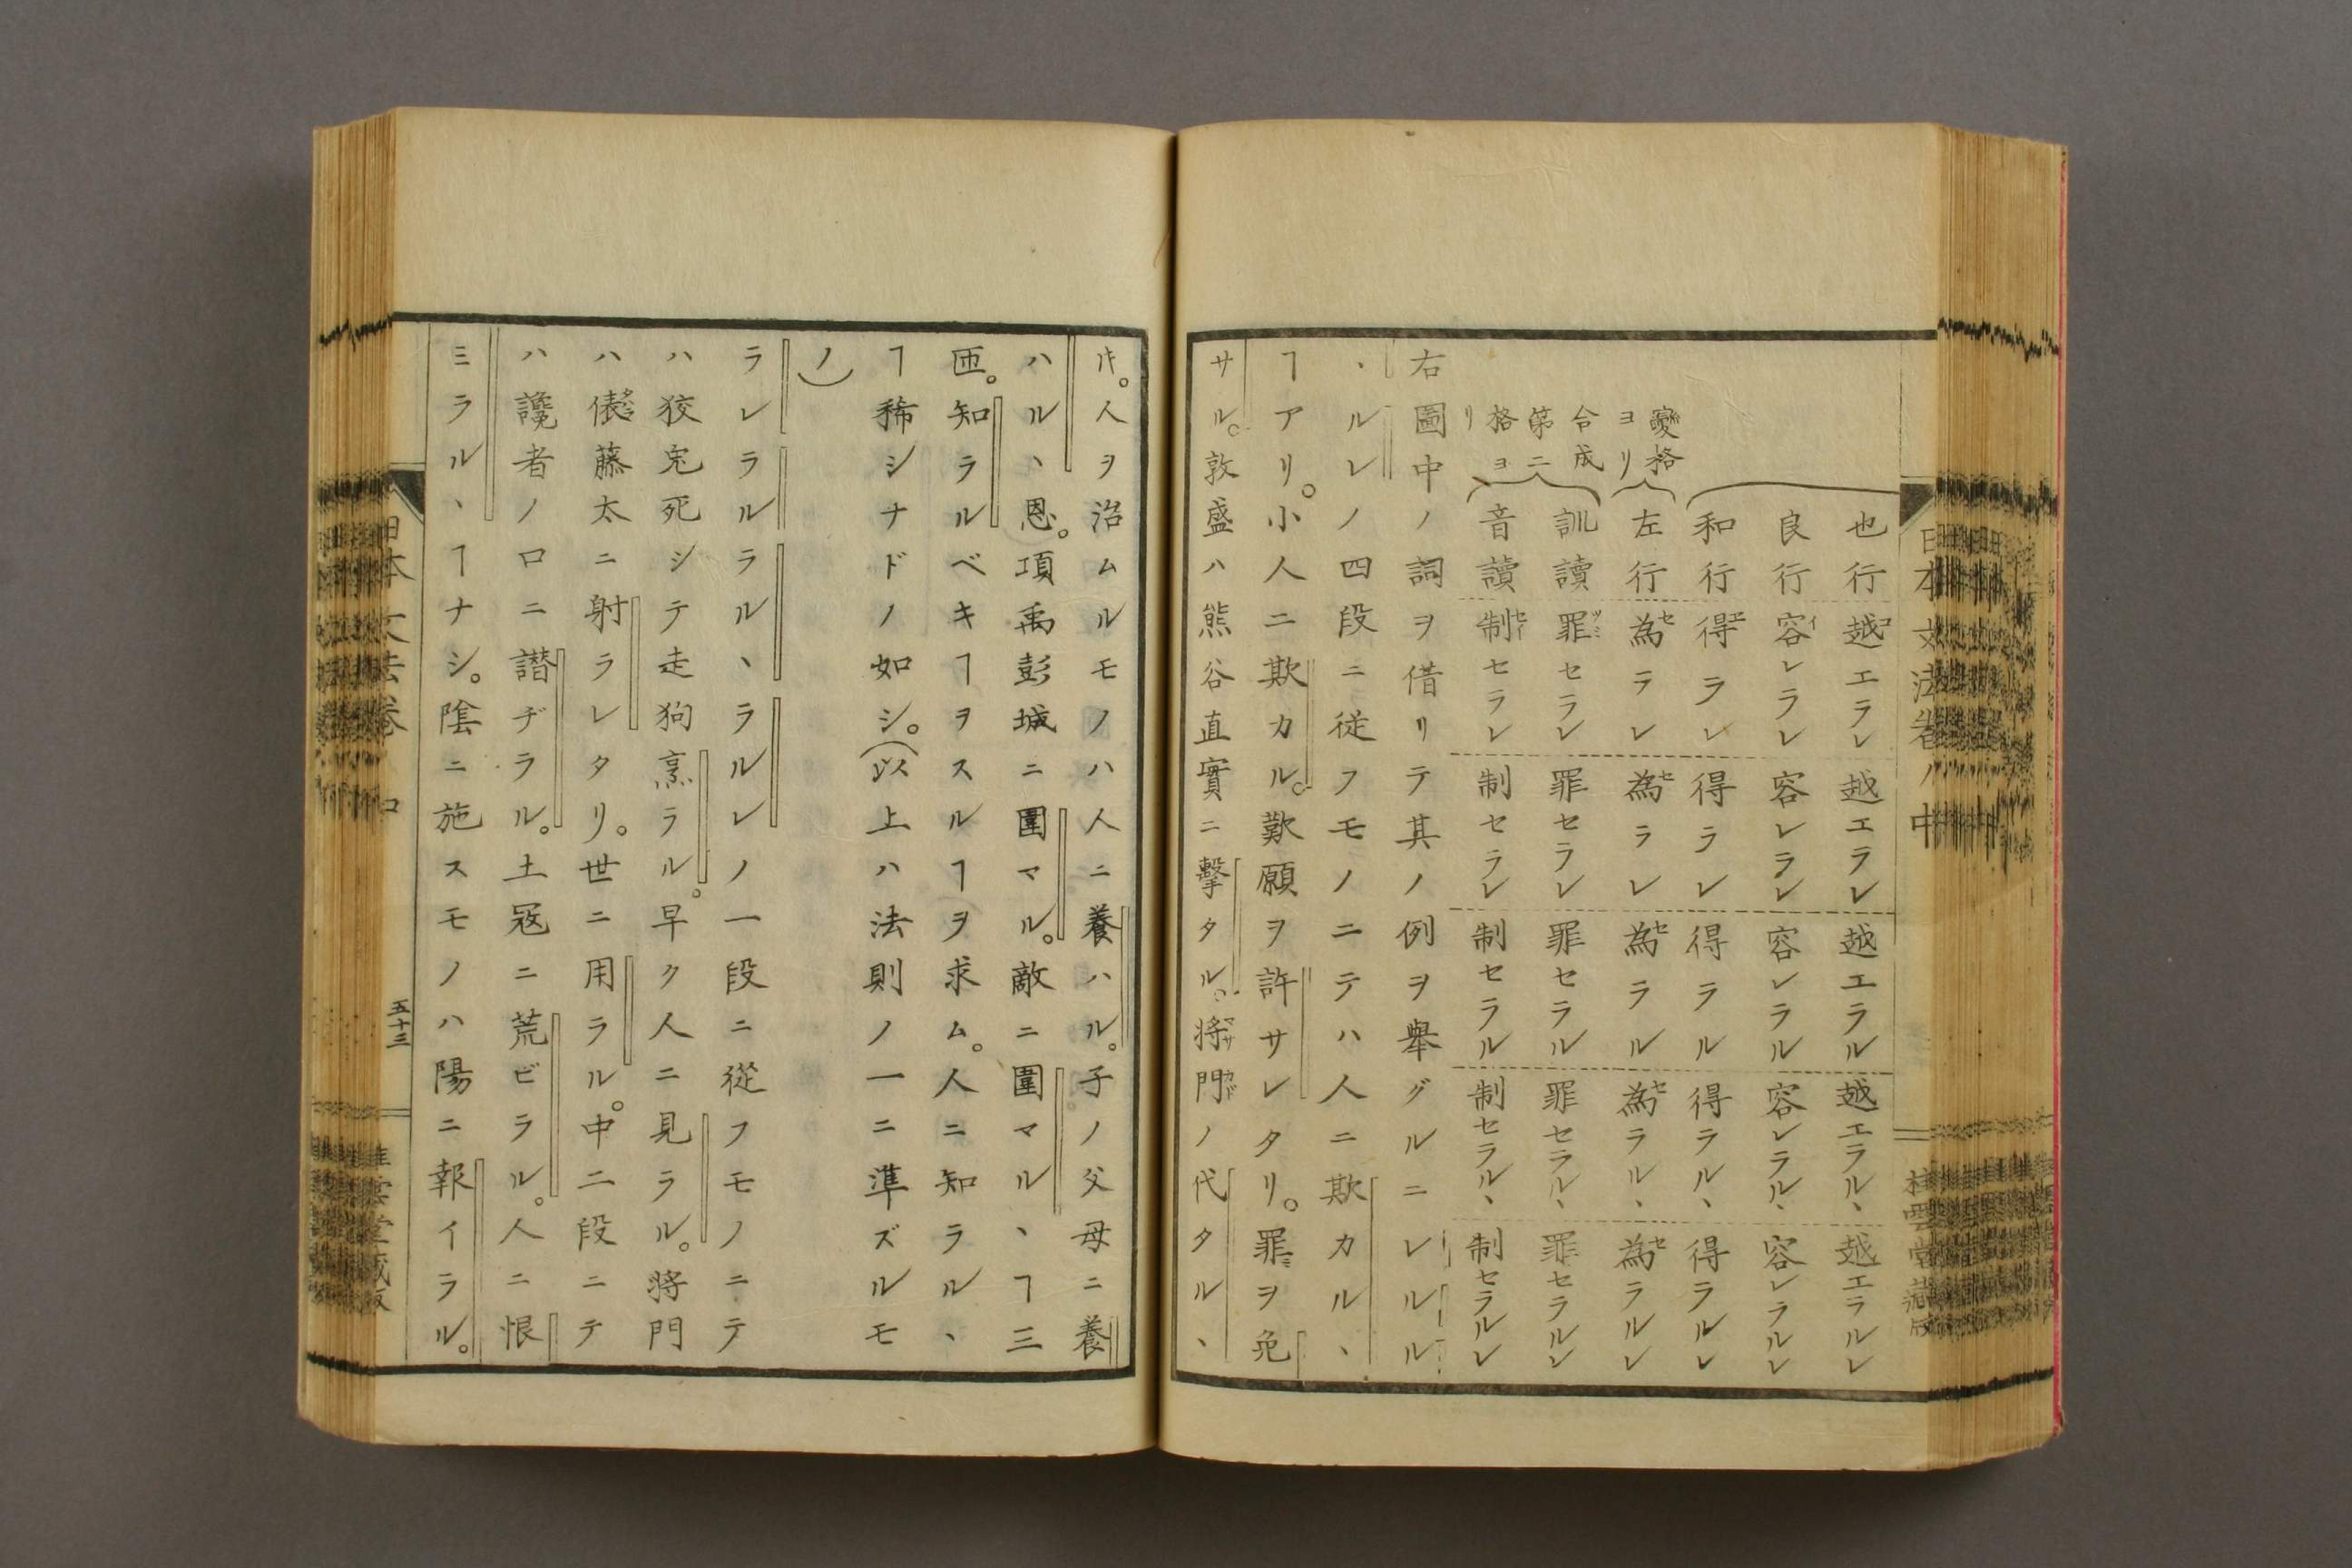 日本文法卷ノ中
桂雲堂藏版
也行 越エラレ 越エラレ 越エラル 越エラル、 越エラルレ
良行 容レラレ 容レラレ 容レラル 容レラル、 容レラルレ
和行 得ラレ 得ラレ 得ラル 得ラル、 得ラルレ
變格ヨリ
左行 為ラレ 為ラレ 為ラル 為ラル、 為ラルレ
合成
第二格ヨリ
訓讀 罪セラレ 罪セラレ 罪セラル 罪セラル、 罪セラルレ
音讀 制セラレ 制セラレ 制セラル 制セラル、 制セラルレ
右圖中ノ詞ヲ借リテ其ノ例ヲ舉グルニレルル
、ルレノ四段ニ從フモノニテハ人ニ欺カル、
ヿアリ。小人ニ欺カル。歎願ヲ許サレタリ。罪ヲ免
サル。敦盛ハ熊谷直實ニ擊タル。將門ノ代タル、
𪜈。人ヲ治ムルモノハ人ニ養ハル。子ノ父母ニ養
ハル、恩。項禹彭城ニ圍マル。敵ニ圍マル、ヿ三
匝。知ラルベキヿヲスルヿヲ求ム。人ニ知ラル、
ヿ稀シナドノ如シ。(以上ハ法則ノ一ニ準ズルモ
ノ)
ラレラルラル、ラルレノ一段ニ從フモノニテ
ハ狡兎死シテ走狗烹ラル。早ク人ニ見ラル。將門
ハ俵藤太ニ射ラレタリ。世ニ用ラル。中二段ニテ
ハ讒者ノ口ニ譖ヂラル。土冦ニ荒ビラル。人ニ恨
ミラル、ヿナシ。陰ニ施スモノハ陽ニ報イラル。
日本文法卷ノ中
五十三